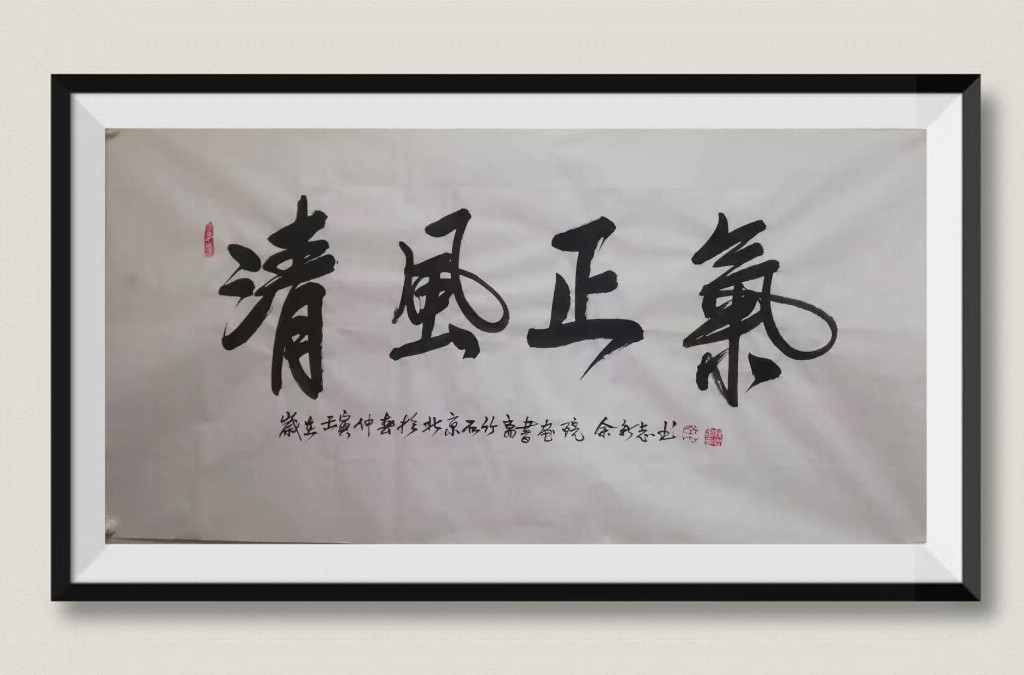 清風正氣
歲在壬寅仲春於北京石竹斋書畫院 余永志书